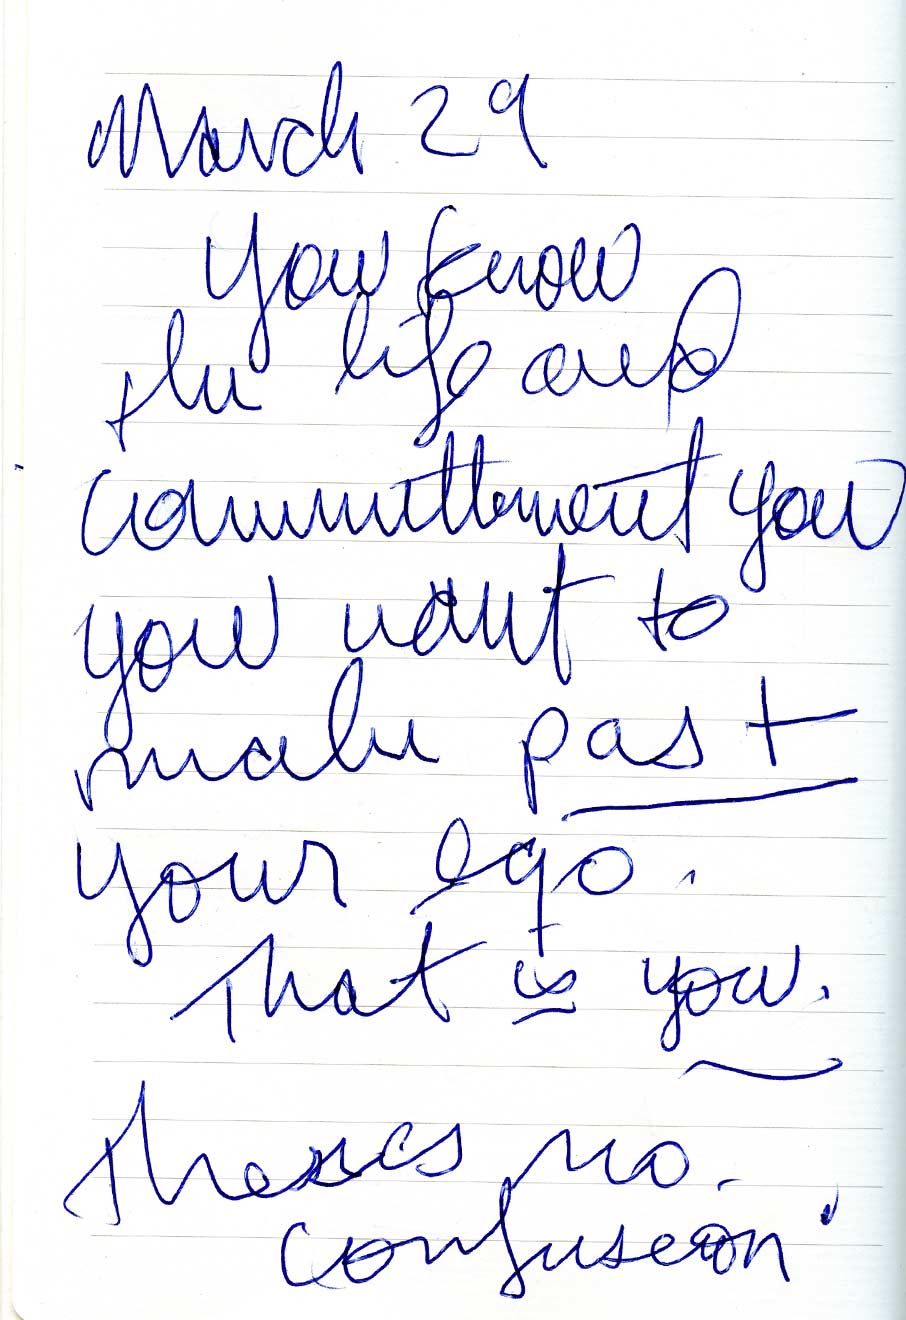 March 29
You know
the life and
committment you
you want to
make past
your ego.
That is you.
There's no
confusion